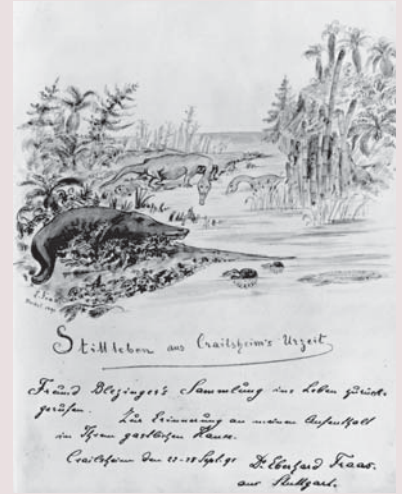 Stillleben aus Crailsheim's Urzeit
Freund Blezinger's Sammlung ins Leben zurück-
gerufen. Zur Erinnerung an meinen Aufenthalt
in Ihrem gastlichen Hause.
Crailsheim den 22-28 Sept. 91 Dr. Eberhard Fraas.
aus Stuttgart.